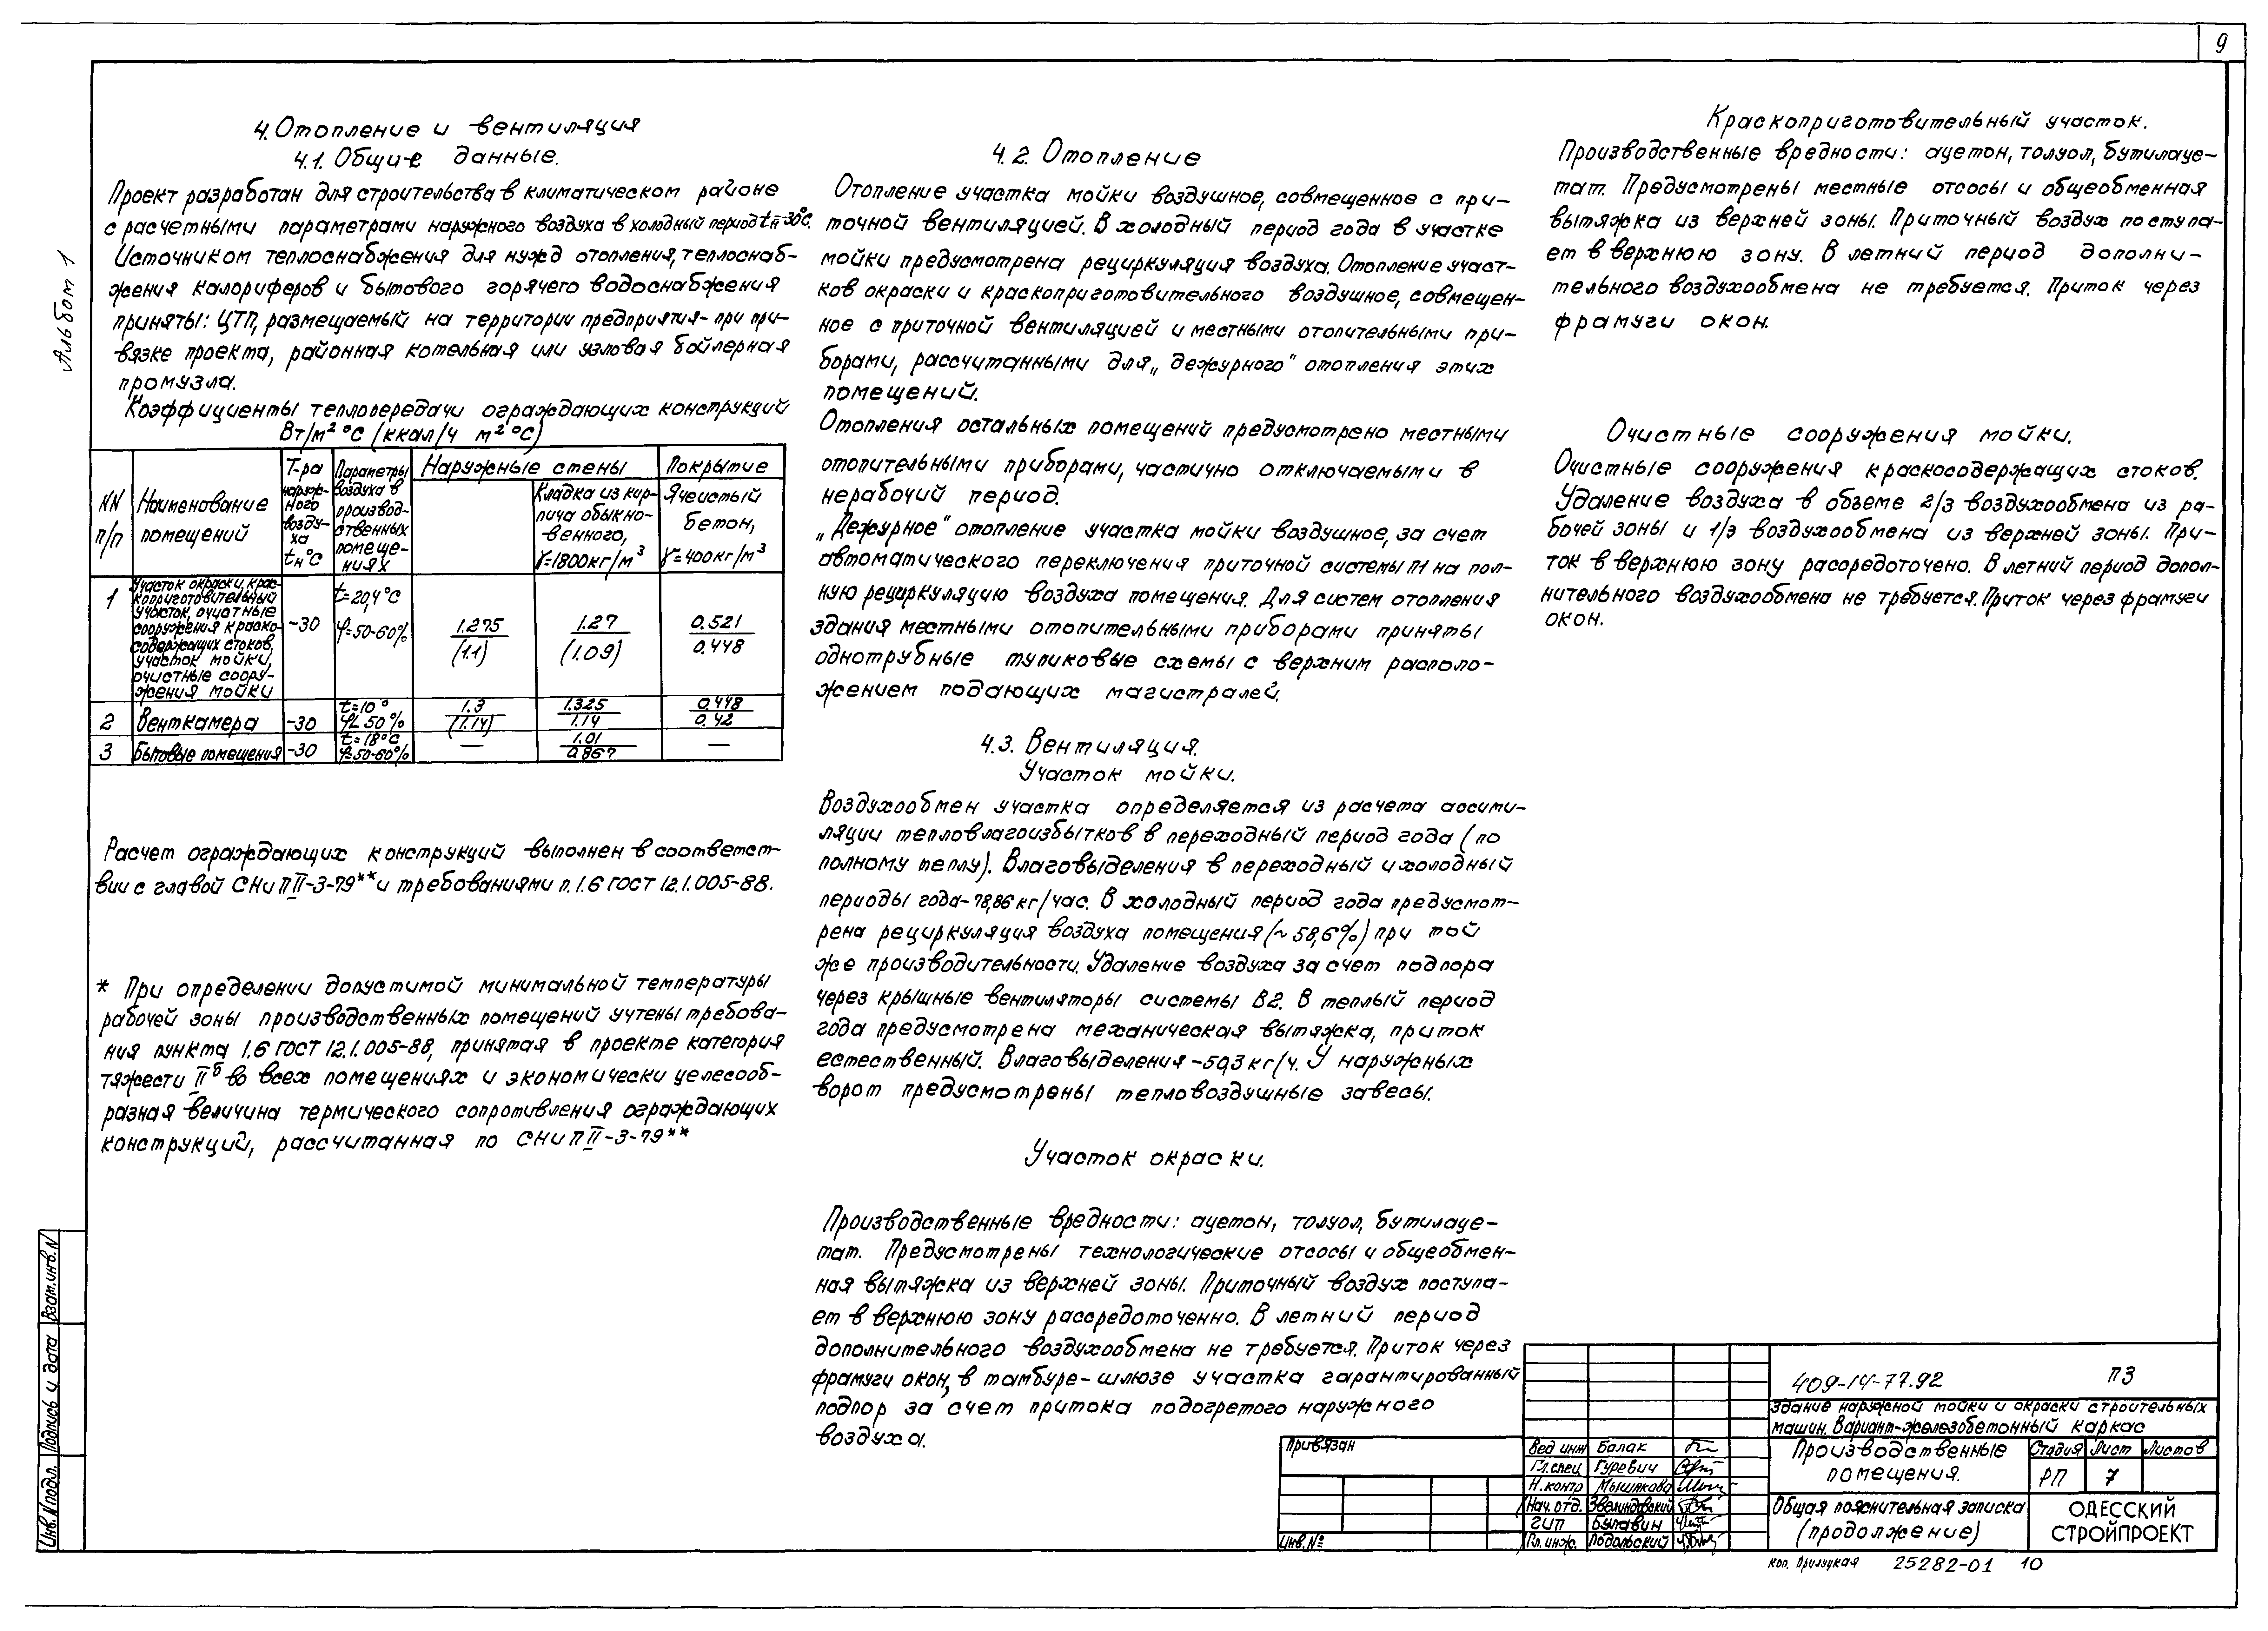 9
Альбом 1
4. Отопление и вентиляция
4.1. Общие данные.
Проект разработан для строительства в климатическом районе
с расчетными параметрами наружного воздуха в холодный период tн=-30°С.
Источником теплоснабжения для нужд отопления, теплоснаб-
жения калориферов и бытового горячего водоснабжения
приняты: ЦТП, размещаемый на территории предприятия- при при-
вязке проекта, районная котельная или узловая бойлерная
промузла.
Коэффициенты теплопередачи ограждающих конструкций
Вт/м² °С (ккал/ч м² °С)
NN п/п
Наименование помещений
Т-ра наруж-ного возду-ха tн °С
Параметры воздуха в производ-ственных помеще-ниях
Наружные стены
Кладка из кир-пича обыкно-венного, γ=1800кг/м³
Покрытие
Ячеистый бетон, γ=400кг/м³
1
Участок окраски, крас-
коприготовительный
участок, очистные
сооружения краско-
содержащих стоков,
участок мойки,
очистные соору-
жения мойки
-30
t=20,4°С
φ=50-60%
1.275
(1.1)
1.27
(1.09)
0.521
0.448
2 Венткамера -30
t=10°
φ∠50%
1.3
(1.14)
1.325
1.14
0.448
0.42
3 Бытовые помещения -30
t=18°С
φ=50-60%
—
1.01
0.867
—
Расчет ограждающих конструкций выполнен в соответст-
вии с главой СНиП II-3-79** и требованиями п.1.6 ГОСТ 12.1.005-88.
* При определении допустимой минимальной температуры
рабочей зоны производственных помещений учтены требова-
ния пункта 1.6 ГОСТ 12.1.005-88, принятая в проекте категория
тяжести IIб во всех помещениях и экономически целесооб-
разная величина термического сопротивления ограждающих
конструкций, рассчитанная по СНиП II-3-79**
4.2. Отопление
Отопление участка мойки воздушное, совмещенное с при-
точной вентиляцией. В холодный период года в участке
мойки предусмотрена рециркуляция воздуха. Отопление участ-
ков окраски и краскоприготовительного воздушное, совмещен-
ное с приточной вентиляцией и местными отопительными при-
борами, рассчитанными для „дежурного" отопления этих
помещений.
Отопления остальных помещений предусмотрено местными
отопительными приборами, частично отключаемыми в
нерабочий период.
„Дежурное" отопление участка мойки воздушное, за счет
автоматического переключения приточной системы П1 на пол-
ную рециркуляцию воздуха помещения. Для систем отопления
здания местными отопительными приборами приняты
однотрубные тупиковые схемы с верхним располо-
жением подающих магистралей.
4.3. Вентиляция.
Участок мойки.
Воздухообмен участка определяется из расчета ассими-
ляции тепловлагоизбытков в переходный период года (по
полному теплу). Влаговыделения в переходный и холодный
периоды года-78,86 кг/час. В холодный период года предусмот-
рена рециркуляция воздуха помещения (~58,6%) при той
же производительности. Удаление воздуха за счет подпора
через крышные вентиляторы системы В2. В теплый период
года предусмотрена механическая вытяжка, приток
естественный. Влаговыделения -50,3 кг/ч. У наружных
ворот предусмотрены тепловоздушные завесы.
Участок окраски.
Производственные вредности: ацетон, толуол, бутилаце-
тат. Предусмотрены технологические отсосы и общеобмен-
ная вытяжка из верхней зоны. Приточный воздух поступа-
ет в верхнюю зону рассредоточенно. В летний период
дополнительного воздухообмена не требуется. Приток через
фрамуги окон, в тамбуре-шлюзе участка гарантированный
подпор за счет притока подогретого наружного
воздуха.
Краскоприготовительный участок.
Производственные вредности: ацетон, толуол, бутилаце-
тат. Предусмотрены местные отсосы и общеобменная
вытяжка из верхней зоны. Приточный воздух поступа-
ет в верхнюю зону. В летний период дополни-
тельного воздухообмена не требуется. Приток через
фрамуги окон.
Очистные сооружения мойки.
Очистные сооружения краскосодержащих стоков.
Удаление воздуха в объеме 2/3 воздухообмена из ра-
бочей зоны и 1/3 воздухообмена из верхней зоны. При-
ток в верхнюю зону рассредоточено. В летний период допол-
нительного воздухообмена не требуется. Приток через фрамуги
окон.
Взам.инв.N
Подпись и дата
Инв.N подл.
Привязан
Инв.№
Вед инж Балак
Гл.спец Гуревич
Н.контр Мышлякова
Нач.отд. Звелиндовский
ГИП Булавин
Гл.инж. Подольский
409-14-77.92 ПЗ
Здание наружной мойки и окраски строительных
машин. Вариант-железобетонный каркас
Производственные
помещения.
Стадия Лист Листов
РП 7
Общая пояснительная записка
(продолжение)
ОДЕССКИЙ
СТРОЙПРОЕКТ
коп. Прилуцкая 25282-01 10